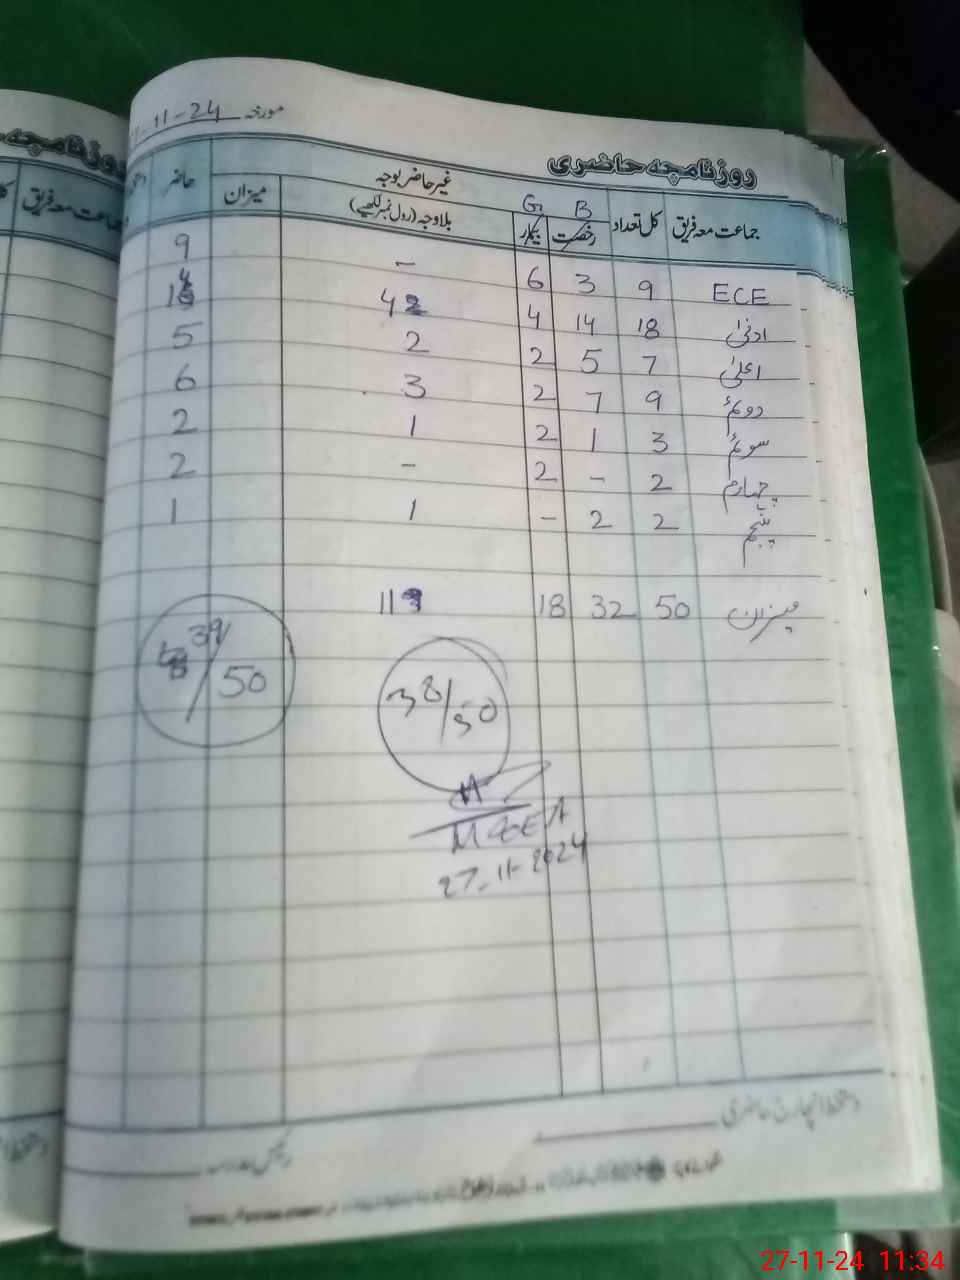 مورخہ 11-24
روزنامچہ حاضری
جماعت معہ فریق کل تعداد رخصت B بیمار G غیر حاضر بوجہ بلاوجہ (رول نمبر لکھیے) میزان حاضر
ECE 9 3 6 - 9
ادنیٰ 18 14 4 4
اعلیٰ 7 5 2 2 5
دوئم 9 7 2 3 6
سوئم 3 1 2 1 2
چہارم 2 - 2 - 2
پنجم 2 2 - 1 1
میزان 50 32 18 11
39/50
38/50
27-11-2024
دستخط انچارج حاضری
رئیس مدرسہ
روزنامچہ
جماعت معہ فریق
27-11-24 11:34